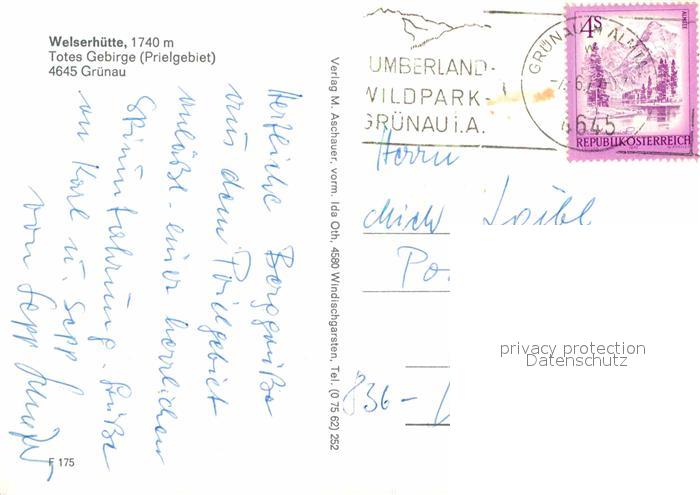 Welserhütte, 1740 m
Totes Gebirge (Prielgebiet)
4645 Grünau
Herzliche Berggrüße
aus dem Prielgebiet
anläßl. einer herrlichen
Grüße
an Karl u. Sepp
von Sepp
F 175
Verlag M. Aschauer, vorm. Ida Oth, 4580 Windischgarsten, Tel. (0 75 62) 252
UMBERLAND-
WILDPARK-
GRÜNAU i. A.
GRÜNAU IM ALMTAL
4645
4S
ALMSEE
REPUBLIK ÖSTERREICH
Herrn
Loibl
Po
836-
privacy protection
Datenschutz